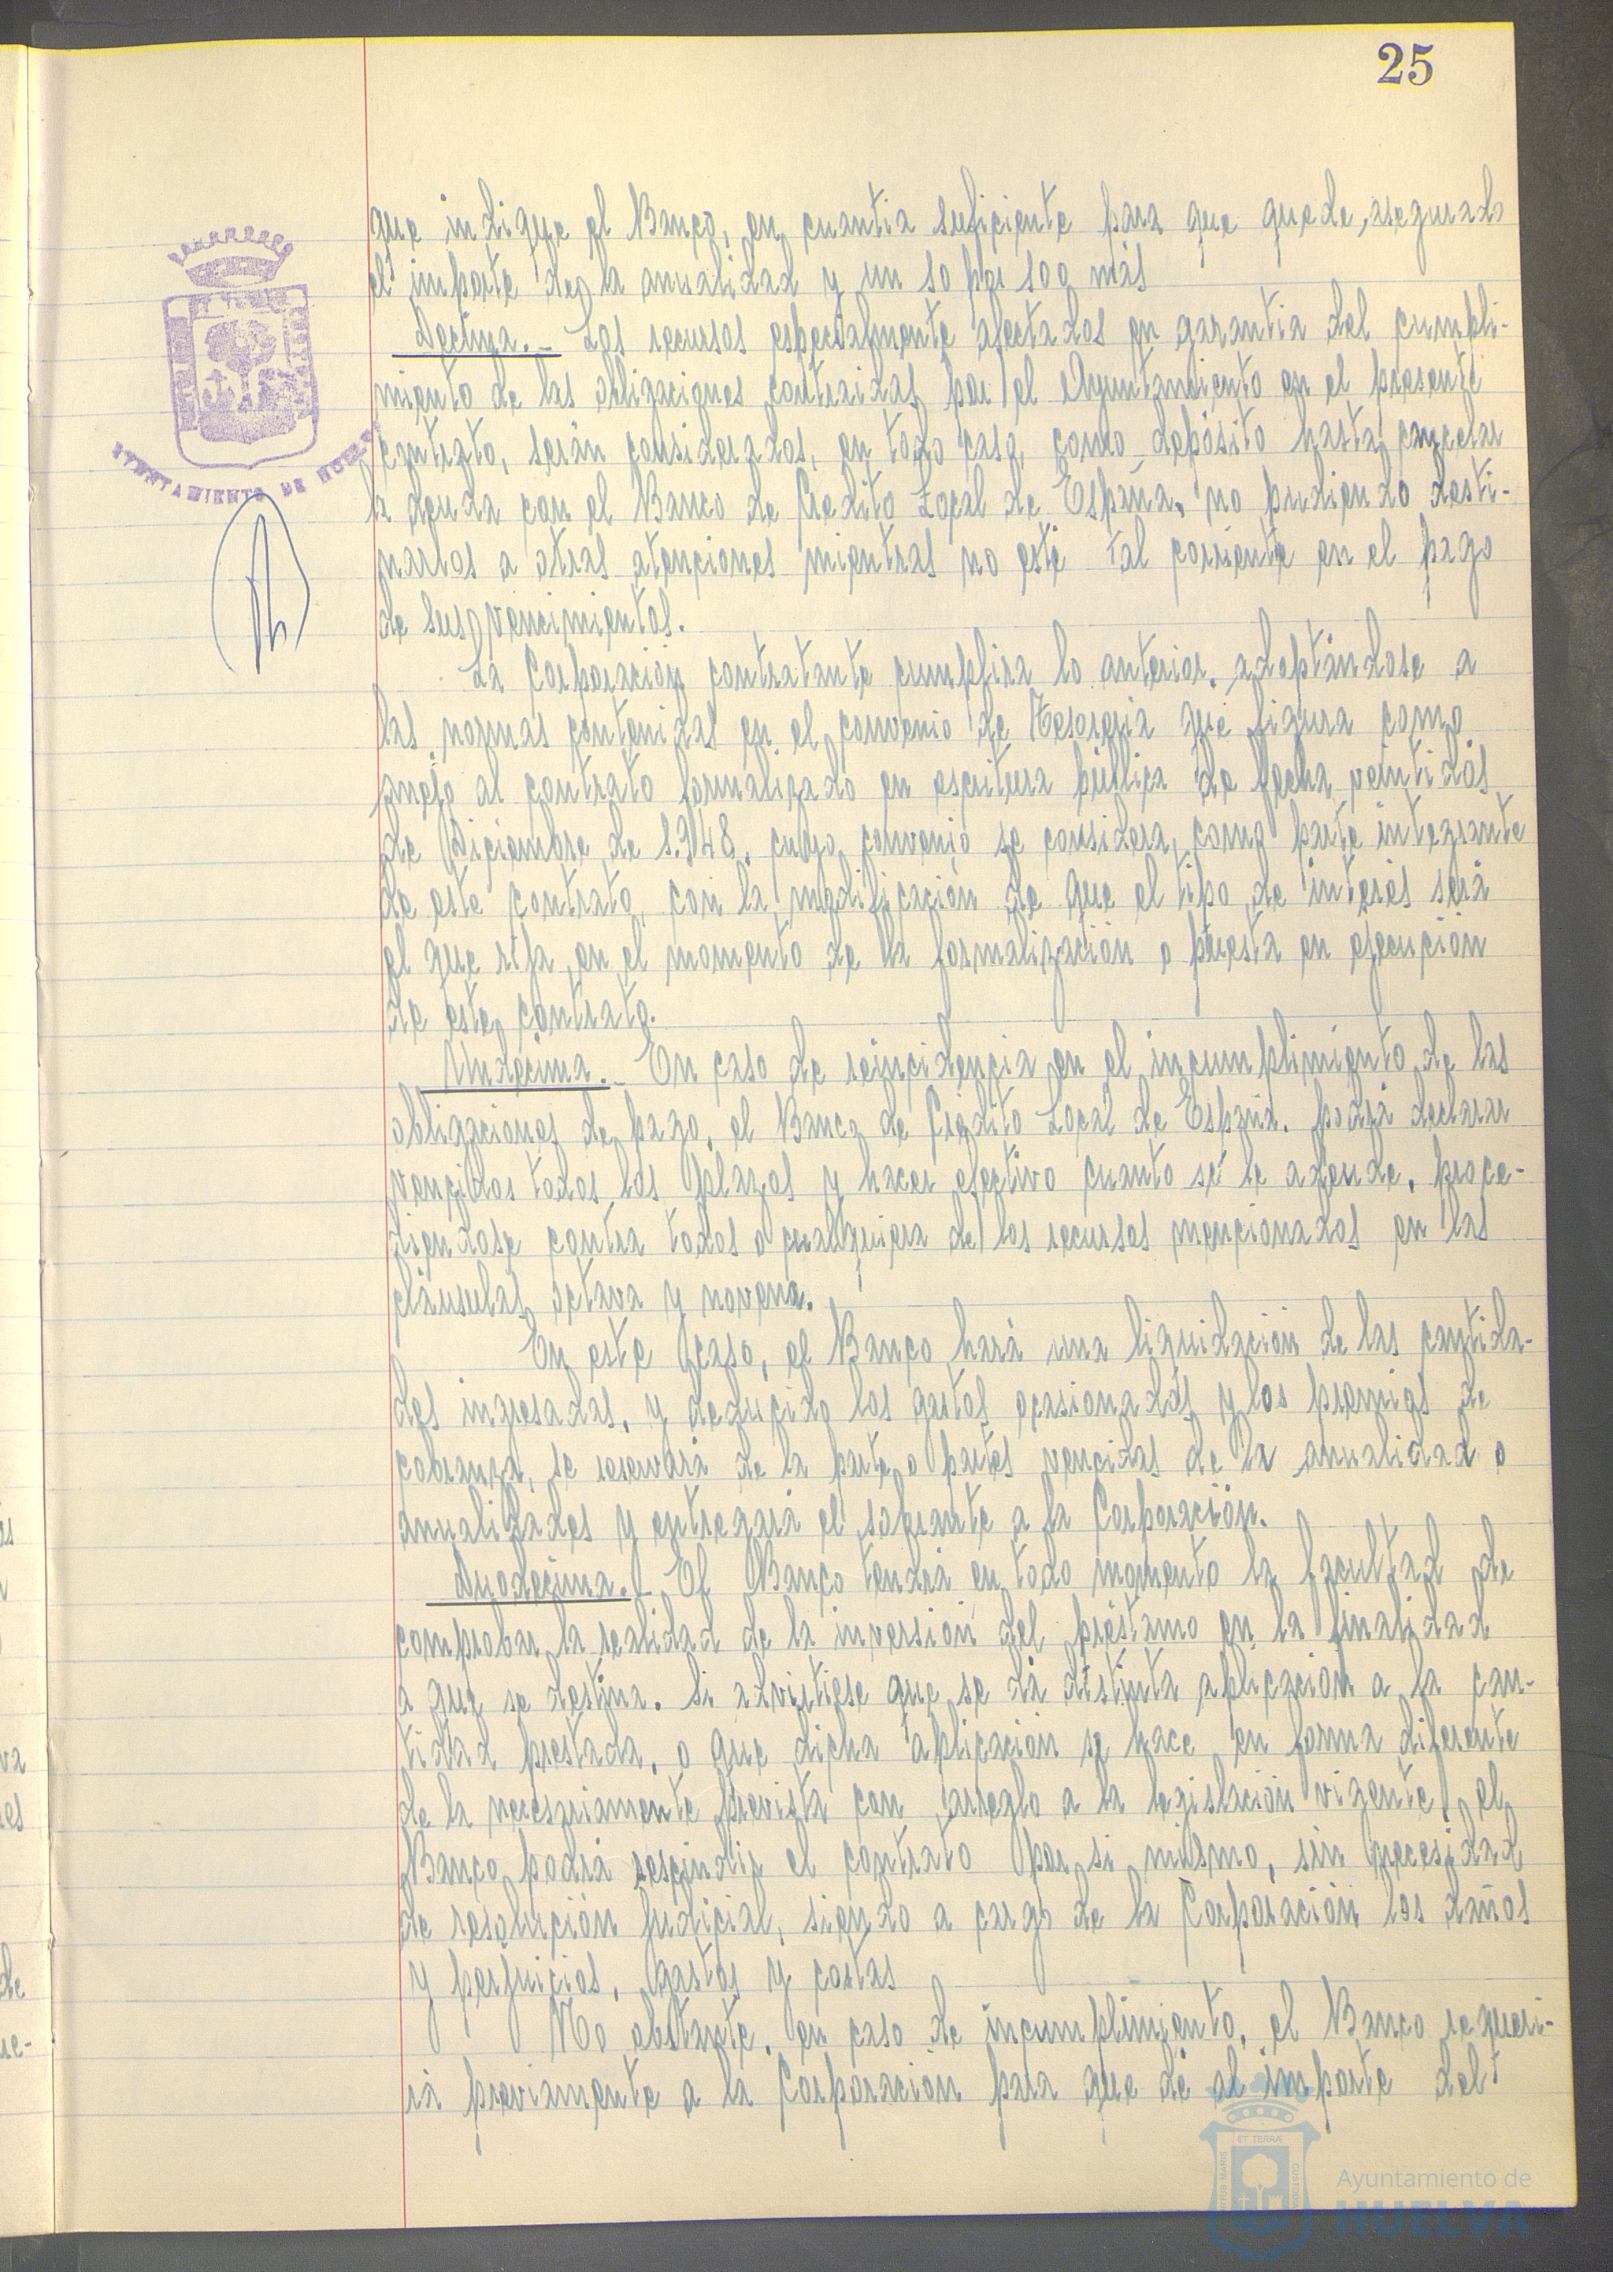 25
que indique el Banco, en cuantia suficiente para que quede, asegurado
el importe de la anualidad y un 10 por 100 más
Decima.- Los recursos especialmente afectados en garantia del cumpli-
miento de las obligaciones contraidas por el Ayuntamiento en el presente
contrato, serán considerados, en todo caso, como depósito hasta cancelar
la deuda con el Banco de Credito Local de España, no pudiendo desti-
narlos a otras atenciones mientras no esté al corriente en el pago
de sus vencimientos.
La Corporación contratante cumplira lo anterior, adaptándose a
las normas contenidas en el convenio de Tesoreria que figura como
anejo al contrato formalizado en escritura pública de fecha veintidós
de Diciembre de 1.948, cuyo convenio se considera como parte integrante
de este contrato, con la modificación de que el tipo de interés será
el que rija en el momento de la formalización o puesta en ejecución
de este contrato.
Undecima.- En caso de reincidencia en el incumplimiento de las
obligaciones de pago, el Banco de Crédito Local de España. podrá declarar
vencidos todos los plazos y hacer efectivo cuanto se le adeude, proce-
diendose contra todos o cualquiera de los recursos mencionados en las
cláusulas octava y novena.
En este caso, el Banco hará una liquidación de las cantida-
des ingresadas, y deducido los gastos ocasionados y los premios de
cobranza, se reservará de la parte o partes vencidas de la anualidad o
anualidades y entregará el sobrante a la Corporación.
Duodecima.- El Banco tendrá en todo momento la facultad de
comprobar la realidad de la inversión del préstamo en la finalidad
a que se destina. Si advirtiese que se dá distinta aplicación a la can-
tidad prestada, o que dicha aplicación se hace en forma diferente
de la necesariamente prevista con arreglo a la legislación vigente, el
Banco podrá rescindir el contrato por si mismo, sin necesidad
de resolución judicial, siendo a cargo de la Corporación los daños
y perjuicios, gastos y costas
No obstante, en caso de incumplimiento, el Banco requeri-
rá previamente a la Corporación para que dé al importe del
AYUNTAMIENTO DE HUELVA
Ayuntamiento de
HUELVA